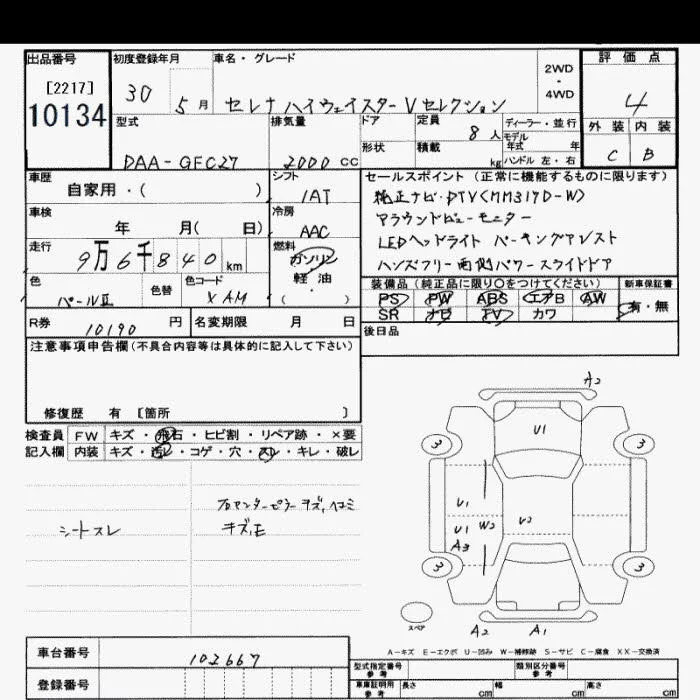 出品番号
[2217]
10134
初度登録年月
30 5月
車名・グレード
セレナ ハイウェイスター V セレクション
2WD
・
4WD
評価点
4
外装 内装
C B
型式
DAA-GFC27
排気量
2000 CC
ドア
形状
定員
8人
積載
kg
ディーラー・並行
モデル
年式 年
ハンドル 左・右
車歴
自家用・( )
シフト
IAT
車検
年 月( 日)
冷房
AAC
走行
9万6千840km
燃料
ガソリン
軽・油
( )
色
パールⅡ
色替
色コード
XAM
R券
10190円
名変期限 月 日
セールスポイント(正常に機能するものに限ります)
純正ナビ・DTV(MM317D-W)
アラウンドビューモニター
LEDヘッドライト パーキングアシスト
ハンズフリー両側パワースライドドア
装備品(純正品に限り○をつけてください)
PS PW ABS エアB AW
SR ナビ TV カワ
新車保証書
有・無
後日品
注意事項申告欄(不具合内容等は具体的に記入して下さい)
修復歴 有 [箇所 ]
検査員
記入欄
FW キズ・飛石・ヒビ割・リペア跡・×要
内装 キズ・汚レ・コゲ・穴・スレ・キレ・破レ
シートスレ
キズ,ヘコミ
車台番号
102667
登録番号
A2
U1
3 3
U1
U1 W2 U2
A3
3 3
スペア
A2 A1
A-キズ E-エクボ U-凹み W-補修跡 S-サビ C-腐食 XX-交換済
型式指定番号
参考
類別区分番号
参考
車庫証明用
参考
長さ cm 幅 cm 高さ cm